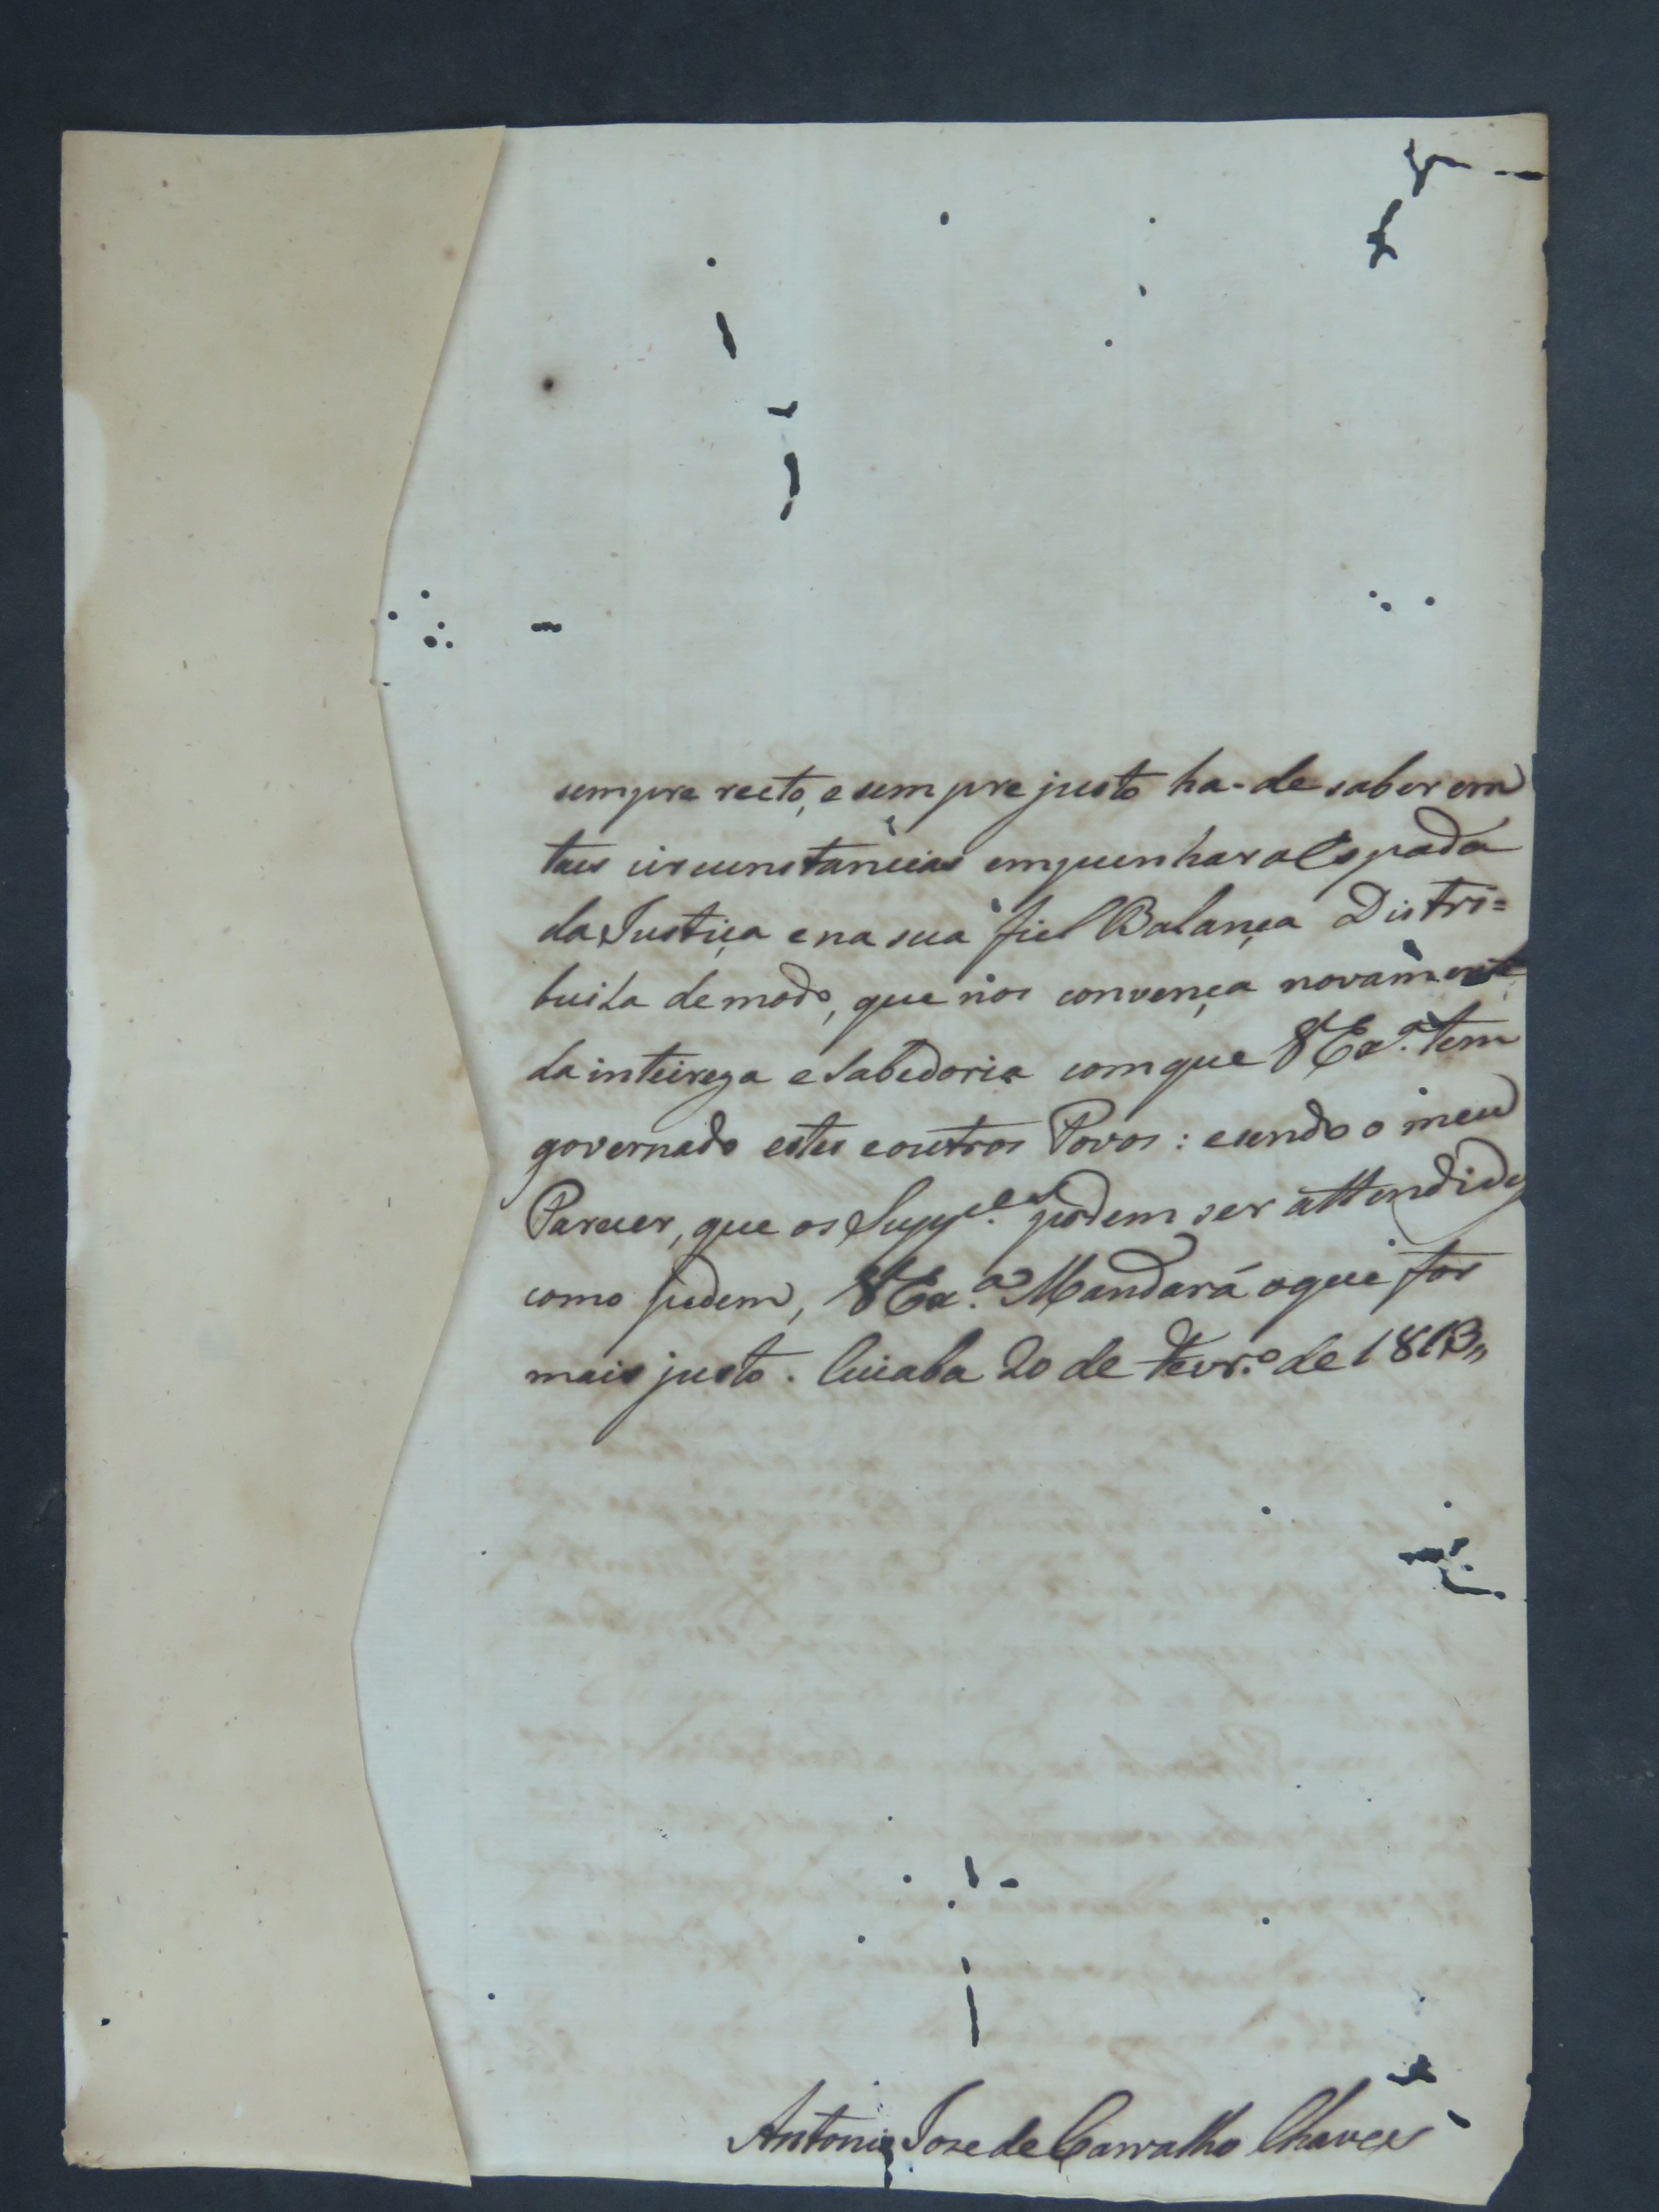 sempre recto, e sempre justo ha-de saber em
taes circunstancias empunhar a Espada
da Justiça e na sua fiel Balança Distri=
buila de modo, que nos convença novamente
da inteireza e Sabedoria com que VEx.ª tem
governado estes e outros Povos: e sendo o meu
Parecer, que os Supp.es podem ser attendidos
como pedem, VEx.ª Mandará o que for
mais justo. Cuiaba 20 de Fevr.º de 1813,,
Antonio Jose de Carvalho Chaves